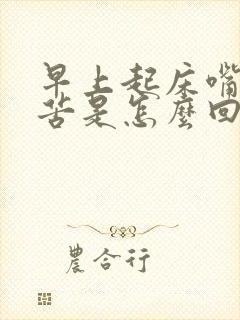 早上起床嘴
苦是怎麼回
農合行